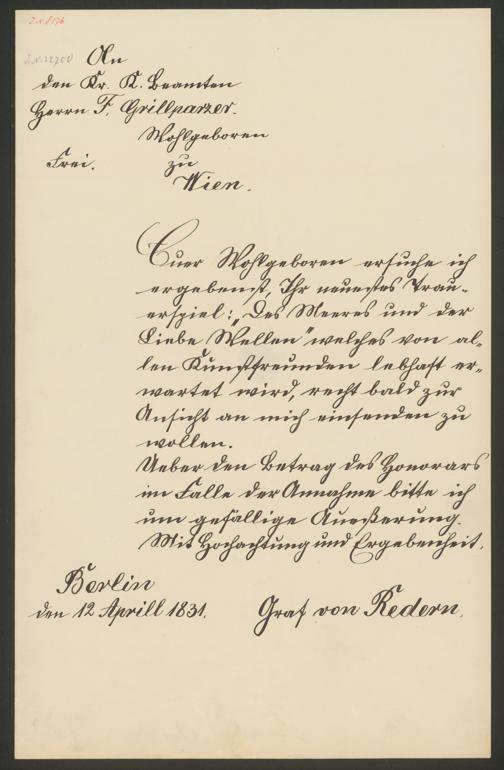 J.N. 8176
J.N. 22750
An
den Kr. K. Beamten
Herrn F. Grillparzer.
Wohlgeboren
Frei. zu
Wien.
Euer Wohlgeboren ersuche ich
ergebenst, Ihr neuestes Trau-
erspiel: „Des Meeres und der
Liebe Wellen" welches von al-
len Kunstfreunden lebhaft er-
wartet wird, recht bald zur
Ansicht an mich einsenden zu
wollen.
Ueber den Betrag des Honorars
im Falle der Annahme bitte ich
um gefällige Aueßerung.
Mit Hochachtung und Ergebenheit.
Berlin
den 12 Aprill 1831. Graf von Redern.